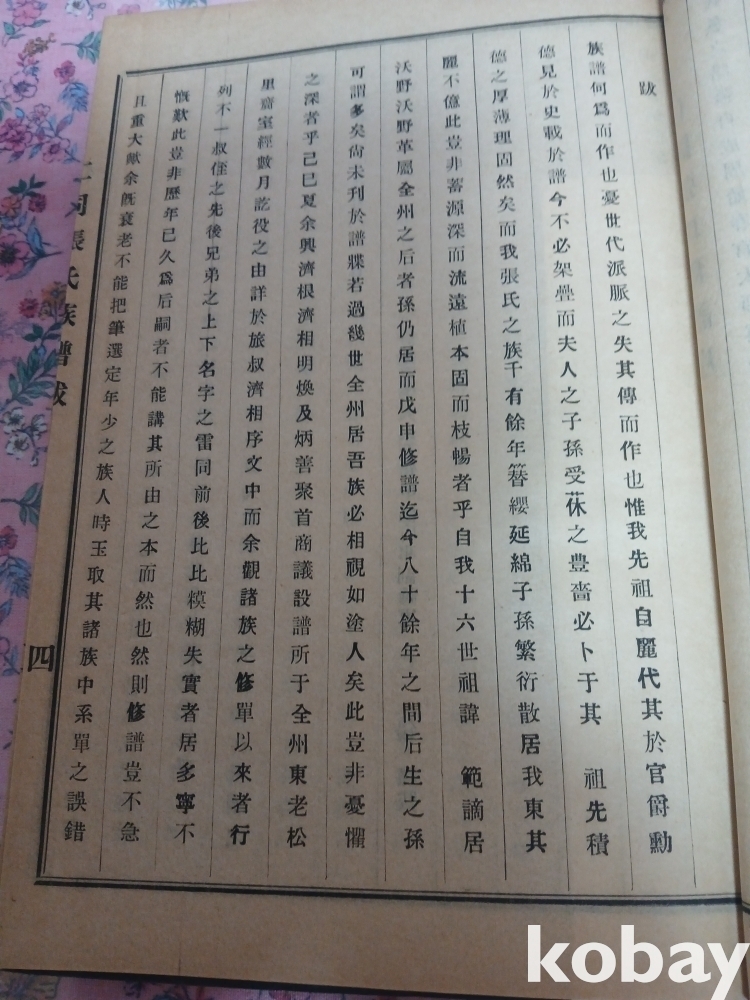 跋
族譜何爲而作也憂世代派脈之失其傳而作也惟我先祖自麗代其於官爵勳
德見於史載於譜今不必架疊而夫人之子孫受茠之豊嗇必卜于其 祖先積
德之厚薄理固然矣而我張氏之族千有餘年簪纓延綿子孫繁衍散居我東其
麗不億此豈非蓄源深而流遠植本固而枝暢者乎自我十六世祖諱 範謫居
沃野沃野革屬全州之后者孫仍居而戊申修譜迄今八十餘年之間后生之孫
可謂多矣尙未刊於譜牒若過幾世全州居吾族必相視如塗人矣此豈非憂懼
之深者乎己巳夏余與濟根濟相明煥及炳善聚首商議設譜所于全州東老松
里齋室經數月訖役之由詳於旅叔濟相序文中而余觀諸族之修單以來者行
列不一叔侄之先後兄弟之上下名字之雷同前後比比模糊失實者居多寧不
慨歎此豈非歷年已久爲后嗣者不能講其所由之本而然也然則修譜豈不急
且重大歟余旣衰老不能把筆選定年少之族人時玉取其諸族中系單之誤錯
同張氏族譜跋
四
kobay